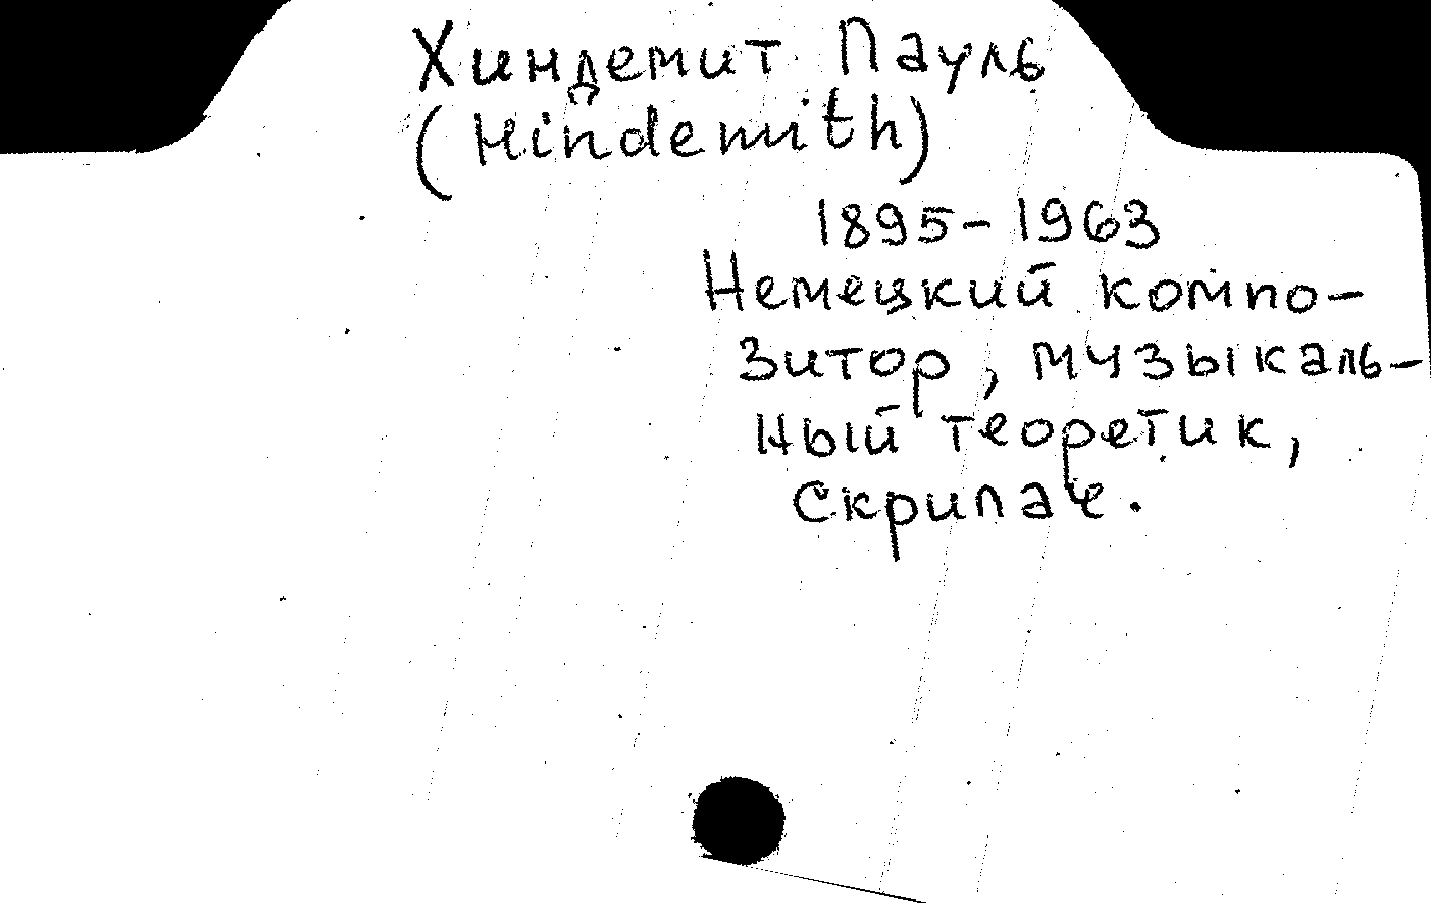 Хиндемит Пауль
(Hindemith)
1895-1963
Немецкий компо-
зитор, музыкаль-
ный теоретик,
скрипач.